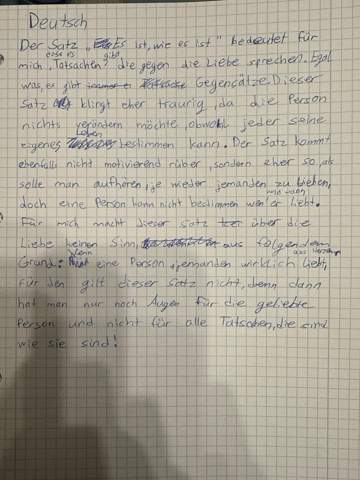 Deutsch
Der Satz „Es ist, wie es ist" bedeutet für
mich, dass es Tatsachen gibt, die gegen die Liebe sprechen. Egal
was, es gibt Gegensätze. Dieser
Satz klingt eher traurig, da die Person
nichts verändern möchte, obwohl jeder seine
eigenes Leben bestimmen kann. Der Satz kommt
ebenfalls nicht motivierend rüber, sondern eher so, als
solle man aufhören, je wieder jemanden zu lieben,
doch eine Person kann nicht bestimmen wen er liebt.
Für mich macht dieser Satz über die
Liebe keinen Sinn, aus folgendem
Grund: Wenn eine Person, jemanden wirklich liebt,
für den gilt dieser Satz nicht, denn dann
hat man nur noch Augen für die geliebte
Person und nicht für alle Tatsachen, die sind
wie sie sind!